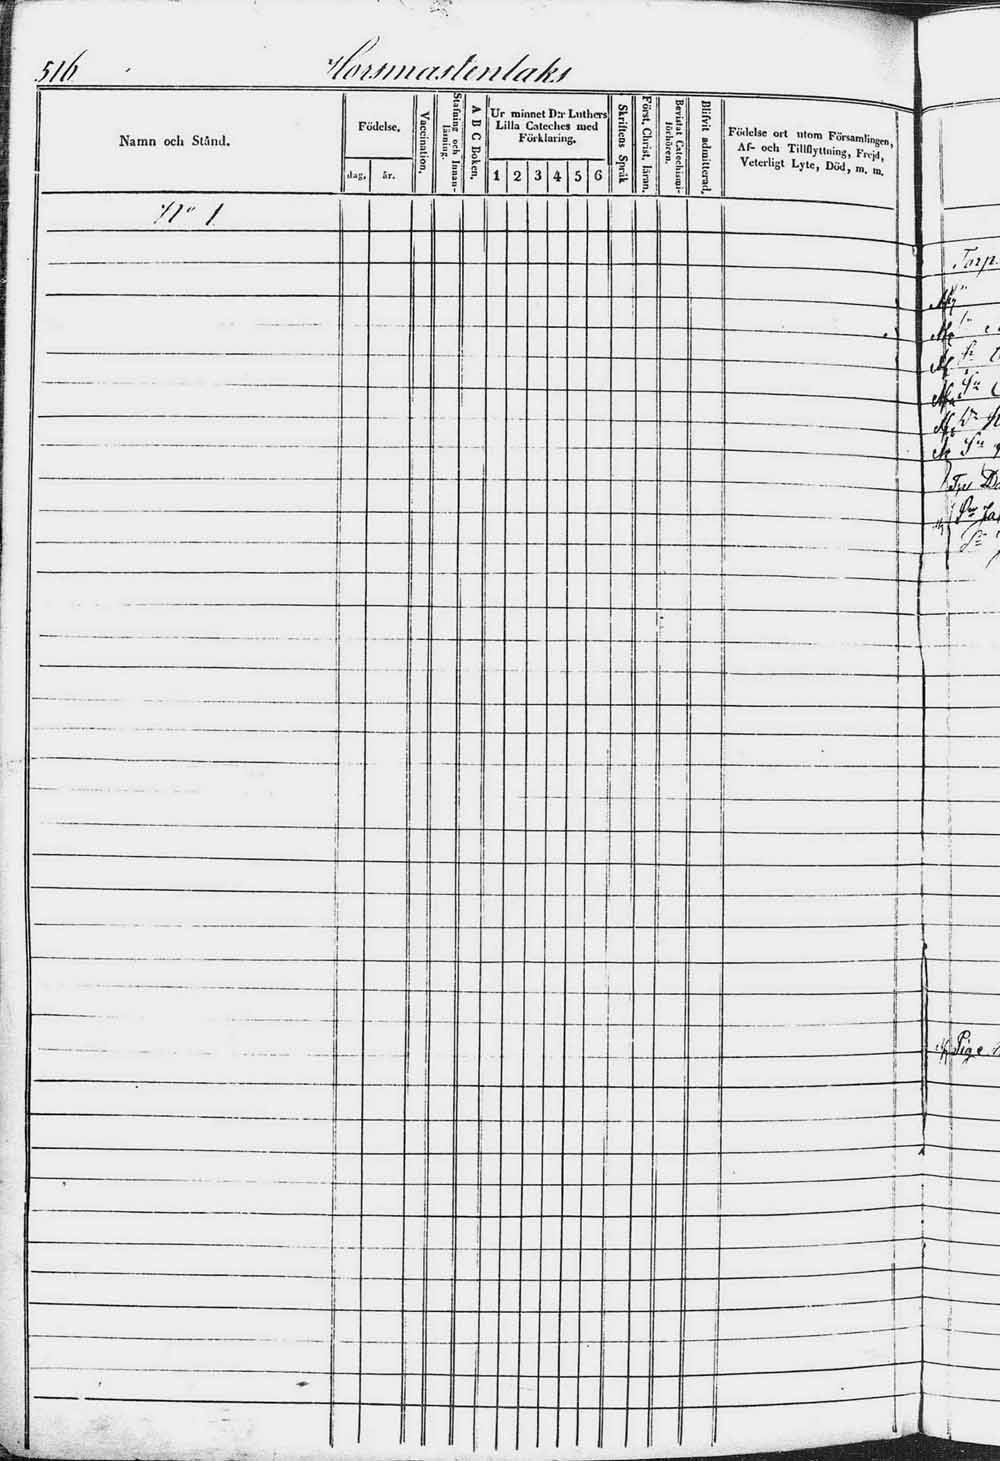 516.
Horsmastenlaks
Namn och Stånd.
Födelse.
dag.
år.
Vaccination.
Stafning och Innan-
läsning.
A B C Boken.
Ur minnet D:r Luthers
Lilla Cateches med
Förklaring.
1 2 3 4 5 6
Skriftens Språk
Först. Christ. läran.
Bevistat Catechismi-
förhören.
Blifvit admitterad.
Födelse ort utom Församlingen,
Af- och Tillflyttning, Frejd,
Veterligt Lyte, Död, m. m.
N:o 1
Torp.
Pige